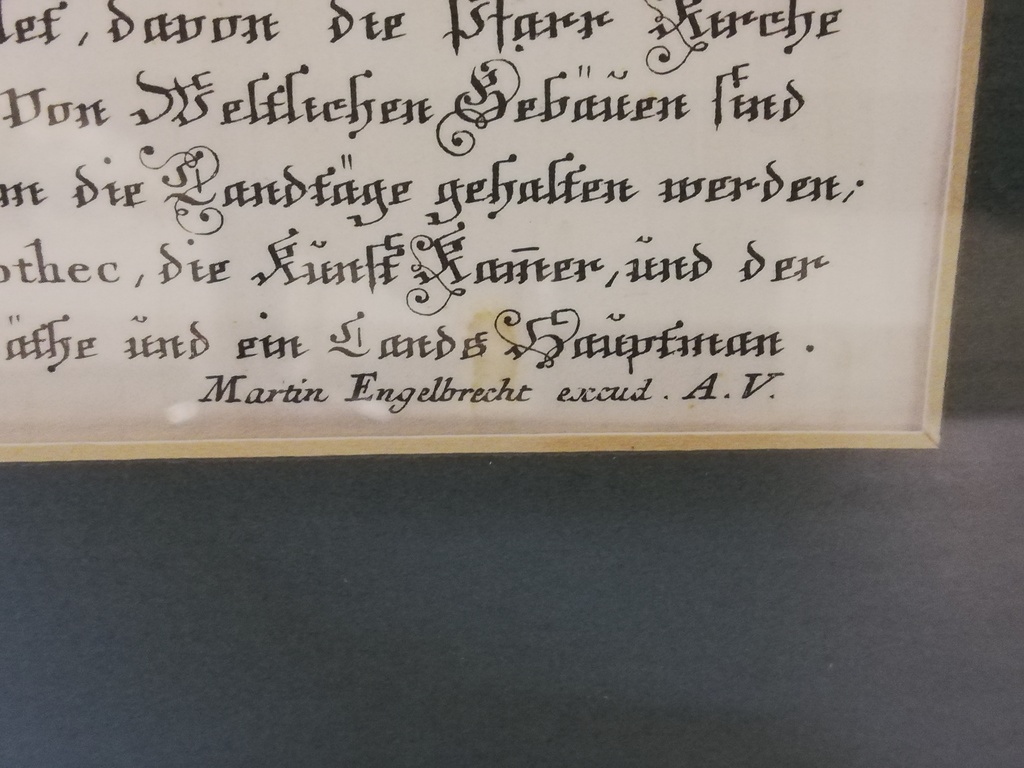 det, davon die Pfarr Kirche
Von Weltlichen Gebäuen sind
m die Landtäge gehalten werden;
othec, die Kŭnst Kam̄er, ŭnd der
äthe ŭnd ein Lands Haŭptman.
Martin Engelbrecht excud. A.V.